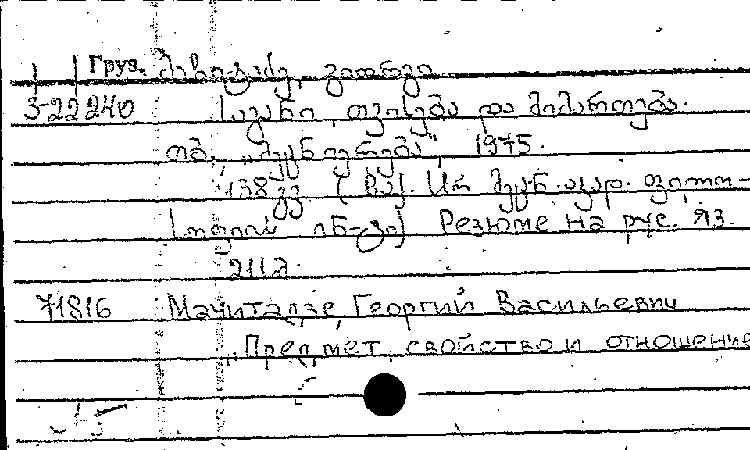 Груз. გიორგი
3-22240 საგანი, თვისება და მიმართება.
თბ., „მეცნიერება“, 1975.
138 გვ. (საქ. სსრ მეცნ. აკად. ფილო-
სოფიის ინ-ტი) Резюме на рус. яз.
71816 Мачитадзе, Георгий Васильевич
„Предмет, свойство и отношение